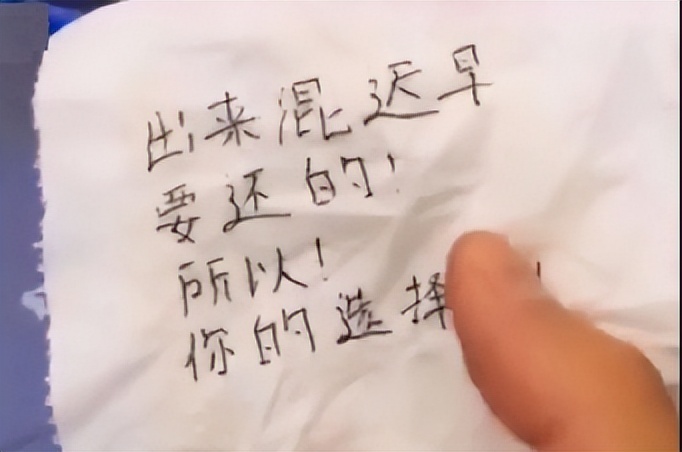 出来混迟早
要还的!
所以!
你的选择!